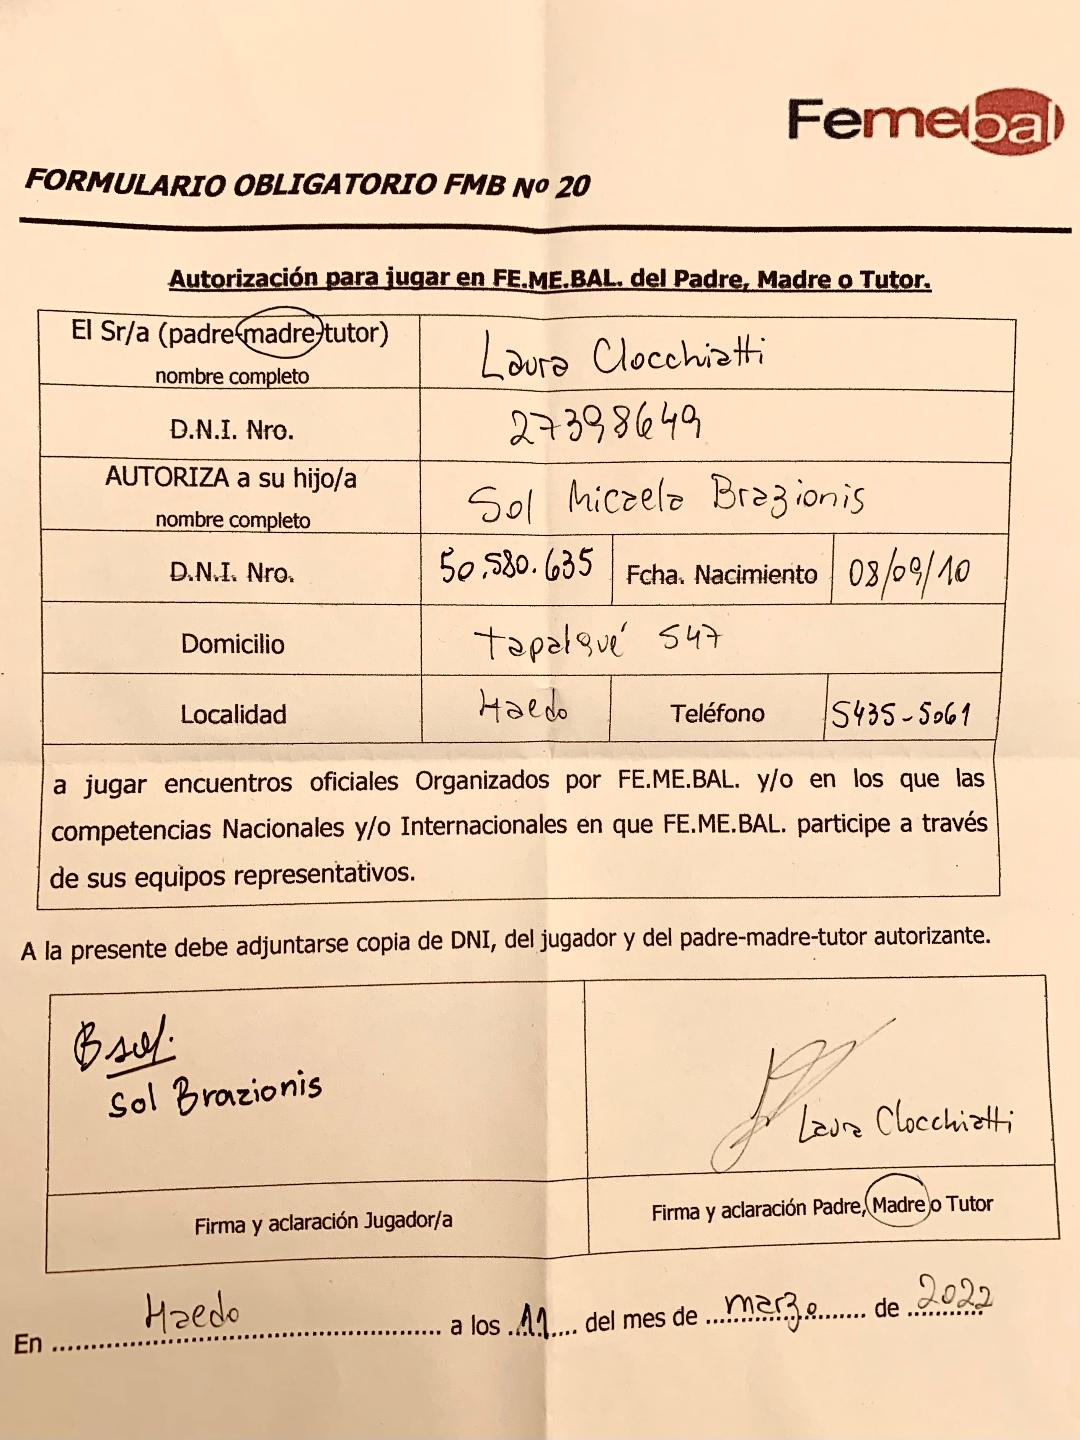 Femebal
FORMULARIO OBLIGATORIO FMB Nº 20
Autorización para jugar en FE.ME.BAL. del Padre, Madre o Tutor.
El Sr/a (padre-madre-tutor)
nombre completo
Laura Clocchiatti
D.N.I. Nro.
27398649
AUTORIZA a su hijo/a
nombre completo
Sol Micaela Brazionis
D.N.I. Nro.
50.580.635
Fcha. Nacimiento
08/09/10
Domicilio
Tapalqué 547
Localidad
Haedo
Teléfono
5435-5061
a jugar encuentros oficiales Organizados por FE.ME.BAL. y/o en los que las
competencias Nacionales y/o Internacionales en que FE.ME.BAL. participe a través
de sus equipos representativos.
A la presente debe adjuntarse copia de DNI, del jugador y del padre-madre-tutor autorizante.
B sol.
Sol Brazionis
Laura Clocchiatti
Firma y aclaración Jugador/a
Firma y aclaración Padre, Madre o Tutor
En Haedo a los 11 del mes de marzo de 2022